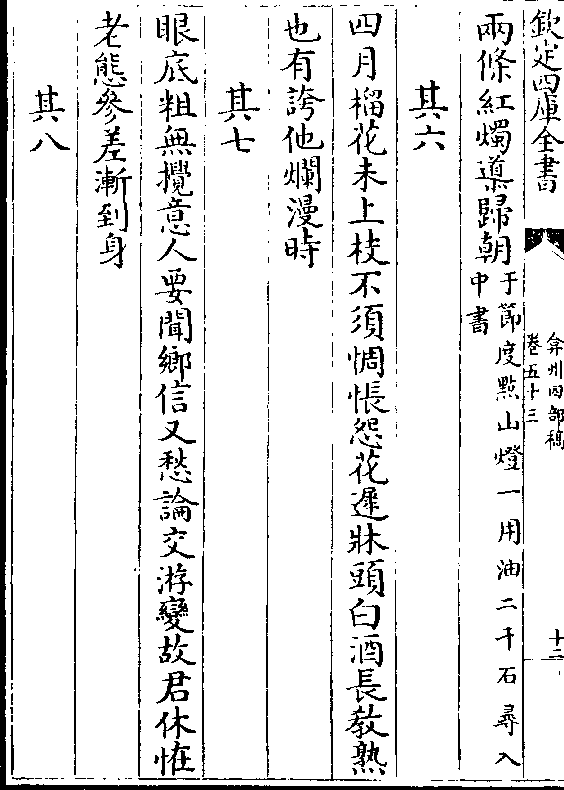 欽定四庫全書
弇州四部稿
卷五十三
十二
兩條紅燭導歸朝于節度點山燈一用油二千石尋入
中書
其六
四月榴花未上枝不須惆悵怨花遲牀頭白酒長教熟
也有誇他爛漫時
其七
眼底粗無攪意人要聞鄉信又愁論交游變故君休怪
老態參差漸到身
其八